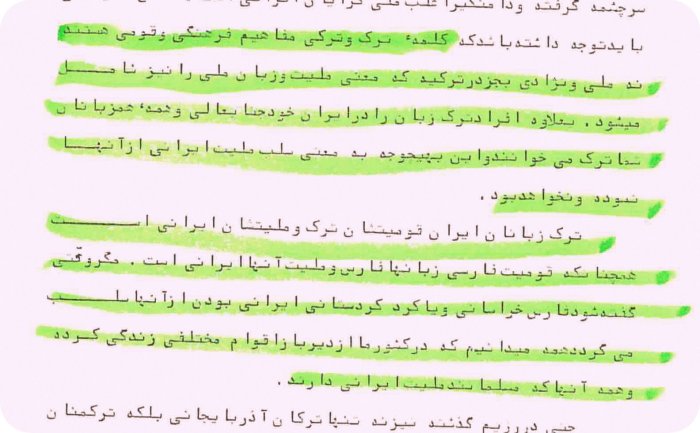 سرچشمه گرفته
باید توجه داشته باشد که کلمهٔ ترک و ترکی مفاهیم فرهنگی و قومی هستند
نه ملی و نژادی بجز در ترکیه که معنی ملیت و زبان ملی را نیز شامل
میشود . بعلاوه افراد ترک زبان را در ایران خود جنابعالی و همهٔ همزبانان
شما ترک می خوانند و این بهیچوجه به معنی سلب ملیت ایرانی از آنها
نبوده و نخواهد بود .
ترک زبانان ایران قومیتشان ترک و ملیتشان ایرانی است
همچنانکه قومیت فارسی زبانها فارس و ملیت آنها ایرانی است . مگر وقتی
گفته شود فارس خراسانی و یا کرد کردستانی ایرانی بودن از آنها سلب
می گردد همه میدانیم که در کشور ما از دیر باز اقوام مختلفی زندگی کرده
و همه آنها که مسلما بند ملیت ایرانی دارند .
حتی در رژیم گذشته نیز نه تنها ترکان آذربایجانی بلکه ترکمنان